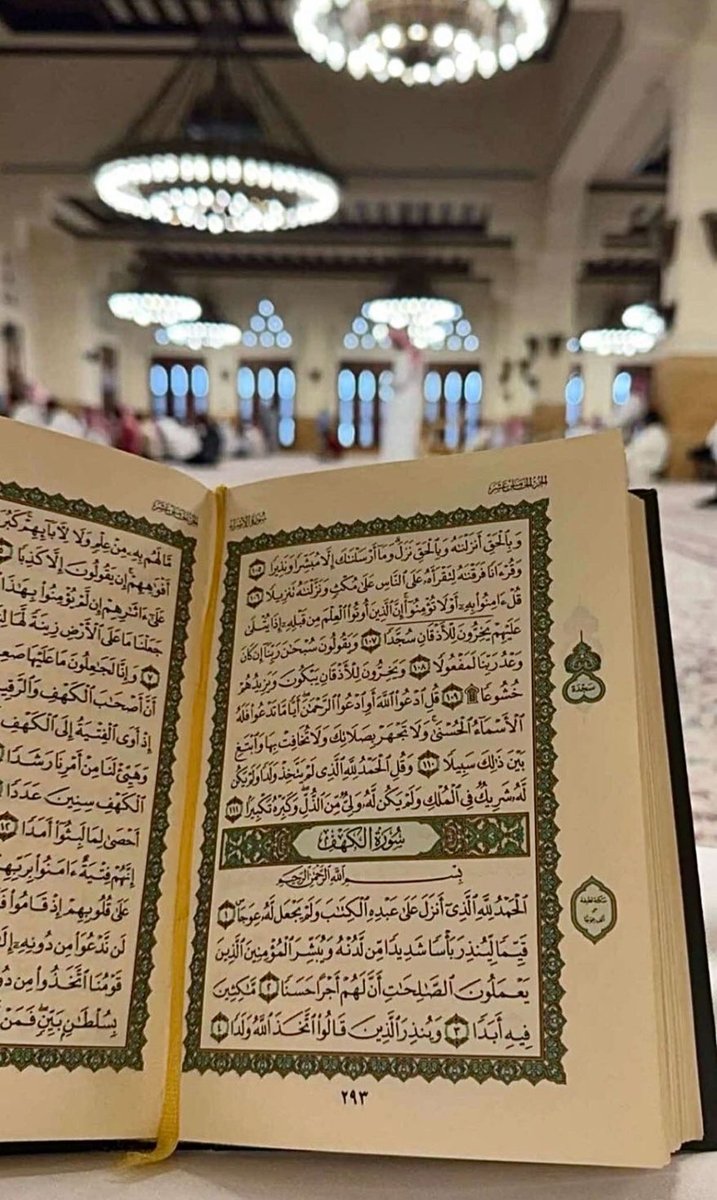 الجزء الخامس عشر
سورة الإسراء
وَبِٱلْحَقِّ أَنزَلْنَٰهُ وَبِٱلْحَقِّ نَزَلَ وَمَآ أَرْسَلْنَٰكَ إِلَّا مُبَشِّرًا وَنَذِيرًا ١٠٥
وَقُرْءَانًا فَرَقْنَٰهُ لِتَقْرَأَهُۥ عَلَى ٱلنَّاسِ عَلَىٰ مُكْثٍ وَنَزَّلْنَٰهُ تَنزِيلًا ١٠٦
قُلْ ءَامِنُوا۟ بِهِۦٓ أَوْ لَا تُؤْمِنُوٓا۟ إِنَّ ٱلَّذِينَ أُوتُوا۟ ٱلْعِلْمَ مِن قَبْلِهِۦٓ إِذَا يُتْلَىٰ
عَلَيْهِمْ يَخِرُّونَ لِلْأَذْقَانِ سُجَّدًا ١٠٧ وَيَقُولُونَ سُبْحَٰنَ رَبِّنَآ إِن كَانَ
وَعْدُ رَبِّنَا لَمَفْعُولًا ١٠٨ وَيَخِرُّونَ لِلْأَذْقَانِ يَبْكُونَ وَيَزِيدُهُمْ
خُشُوعًا ۩ ١٠٩ قُلِ ٱدْعُوا۟ ٱللَّهَ أَوِ ٱدْعُوا۟ ٱلرَّحْمَٰنَ أَيًّا مَّا تَدْعُوا۟ فَلَهُ
ٱلْأَسْمَآءُ ٱلْحُسْنَىٰ وَلَا تَجْهَرْ بِصَلَاتِكَ وَلَا تُخَافِتْ بِهَا وَٱبْتَغِ
بَيْنَ ذَٰلِكَ سَبِيلًا ١١٠ وَقُلِ ٱلْحَمْدُ لِلَّهِ ٱلَّذِى لَمْ يَتَّخِذْ وَلَدًا وَلَمْ يَكُن
لَّهُۥ شَرِيكٌ فِى ٱلْمُلْكِ وَلَمْ يَكُن لَّهُۥ وَلِىٌّ مِّنَ ٱلذُّلِّ وَكَبِّرْهُ تَكْبِيرًۢا ١١١
سُورَةُ الكَهْفِ
بِسْمِ ٱللَّهِ ٱلرَّحْمَٰنِ ٱلرَّحِيمِ
ٱلْحَمْدُ لِلَّهِ ٱلَّذِىٓ أَنزَلَ عَلَىٰ عَبْدِهِ ٱلْكِتَٰبَ وَلَمْ يَجْعَل لَّهُۥ عِوَجَا ١
قَيِّمًا لِّيُنذِرَ بَأْسًا شَدِيدًا مِّن لَّدُنْهُ وَيُبَشِّرَ ٱلْمُؤْمِنِينَ ٱلَّذِينَ
يَعْمَلُونَ ٱلصَّٰلِحَٰتِ أَنَّ لَهُمْ أَجْرًا حَسَنًا ٢ مَّٰكِثِينَ
فِيهِ أَبَدًا ٣ وَيُنذِرَ ٱلَّذِينَ قَالُوا۟ ٱتَّخَذَ ٱللَّهُ وَلَدًا ٤
٢٩٣
سجدة
الجزء الخامس عشر
مَّا لَهُم بِهِۦ مِنْ عِلْمٍ وَلَا لِءَابَآئِهِمْ كَبُرَ
أَفْوَٰهِهِمْ إِن يَقُولُونَ إِلَّا كَذِبًا
عَلَىٰٓ ءَاثَٰرِهِمْ إِن لَّمْ يُؤْمِنُوا۟ بِهَٰذَا
جَعَلْنَا مَا عَلَى ٱلْأَرْضِ زِينَةً لَّهَا
٧ وَإِنَّا لَجَٰعِلُونَ مَا عَلَيْهَا
أَنَّ أَصْحَٰبَ ٱلْكَهْفِ
إِذْ أَوَى ٱلْفِتْيَةُ إِلَى ٱلْكَهْفِ
وَهَيِّئْ لَنَا مِنْ أَمْرِنَا رَشَدًا
ٱلْكَهْفِ سِنِينَ عَدَدًا
أَحْصَىٰ لِمَا لَبِثُوٓا۟ أَمَدًا ١٢
إِنَّهُمْ فِتْيَةٌ ءَامَنُوا۟
عَلَىٰ قُلُوبِهِمْ إِذْ قَامُوا۟
لَن نَّدْعُوَا۟ مِن دُونِهِۦٓ
قَوْمُنَا ٱتَّخَذُوا۟ مِن
بِسُلْطَٰنٍۭ بَيِّنٍ فَمَنْ